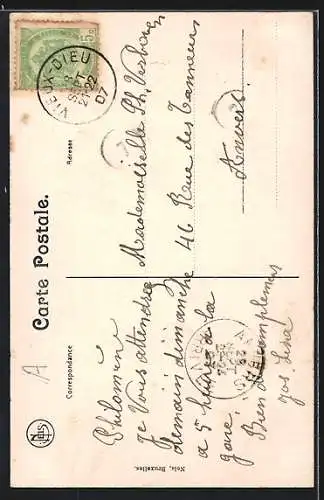 Carte Postale.
Correspondance
Adresse
5c
VIEUX-DIEU
SEPT
21-22
07
Philomène
je Vous attendrai
demain dimanche
a 5 heures a la
gare.
Bien de complemens
Jos.
Mademoiselle Ph. Verboven
46 Rue des Tanneurs
Anvers
22
SEPT
NELS
Nels, Bruxelles.